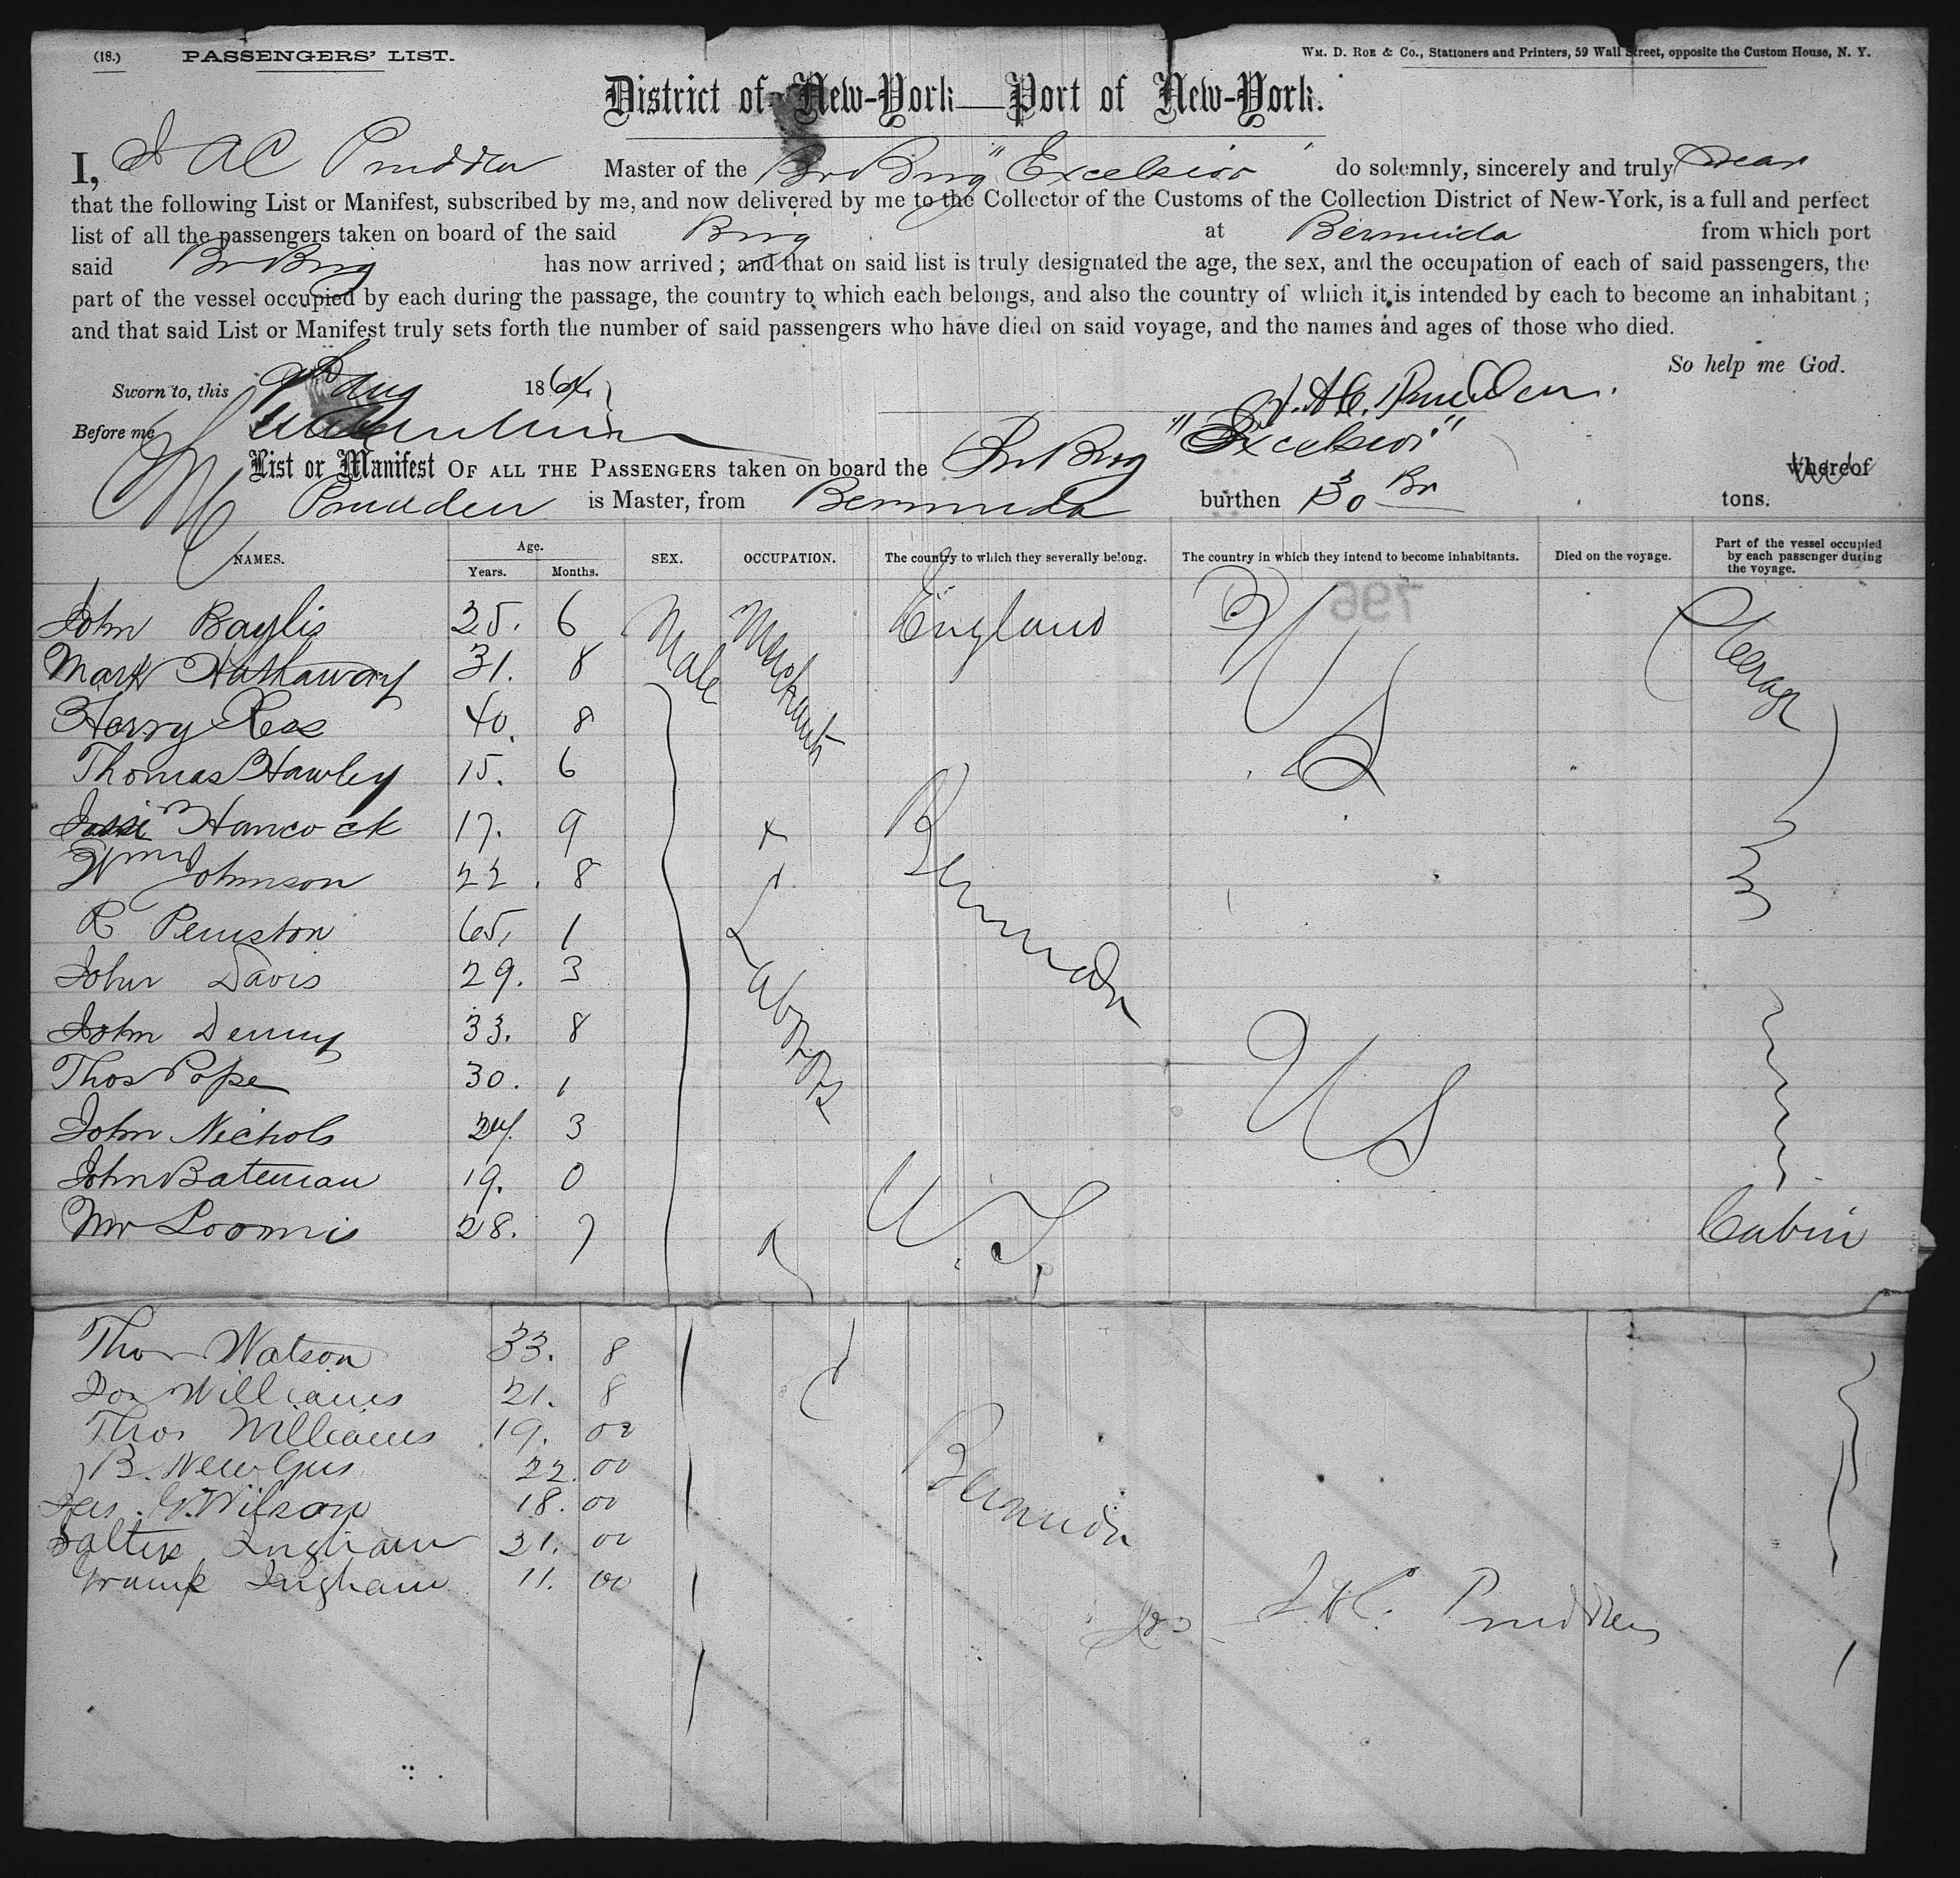 (18.) PASSENGERS' LIST. WM. D. ROE & CO., Stationers and Printers, 59 Wall Street, opposite the Custom House, N. Y.
District of New-York—Port of New-York.
I, Prudden Master of the Br Brig "Excelsior" do solemnly, sincerely and truly swear
that the following List or Manifest, subscribed by me, and now delivered by me to the Collector of the Customs of the Collection District of New-York, is a full and perfect
list of all the passengers taken on board of the said Brig at Bermuda from which port
said Br Brig has now arrived; and that on said list is truly designated the age, the sex, and the occupation of each of said passengers, the
part of the vessel occupied by each during the passage, the country to which each belongs, and also the country of which it is intended by each to become an inhabitant;
and that said List or Manifest truly sets forth the number of said passengers who have died on said voyage, and the names and ages of those who died.
So help me God.
Sworn to, this 9th Aug 1864. Prudden.
Before me
List or Manifest OF ALL THE PASSENGERS taken on board the Br Brig "Excelsior" whereof
Prudden is Master, from Bermuda burthen tons.
NAMES. Age. Years. Months. SEX. OCCUPATION. The country to which they severally belong. The country in which they intend to become inhabitants. Died on the voyage. Part of the vessel occupied by each passenger during the voyage.
796
John Baylis 25. 6 Male Merchants England U S Steerage
Mark Hathaway 31. 8
Harry Rees 40. 8
Thomas Hawley 15. 6
Hancock 17. 9 Bermuda
Wm Johnson 22. 8
R Peniston 65, 1 Laborers
John Davis 29. 3
John Denny 33. 8 U S
Thos Pope 30. 1
John Nichols 24. 3
John Bateman 19. 0
Mr Loomis 28. 7 U.S. Cabin
Thos Watson 33. 8
Jos Williams 21. 8
Thos Williams 19. 00 Bermuda
B. 22. 00
Jas. W. Wilson 18. 00
Ingham 21. 00
Frank Ingham 11. 00
Prudden